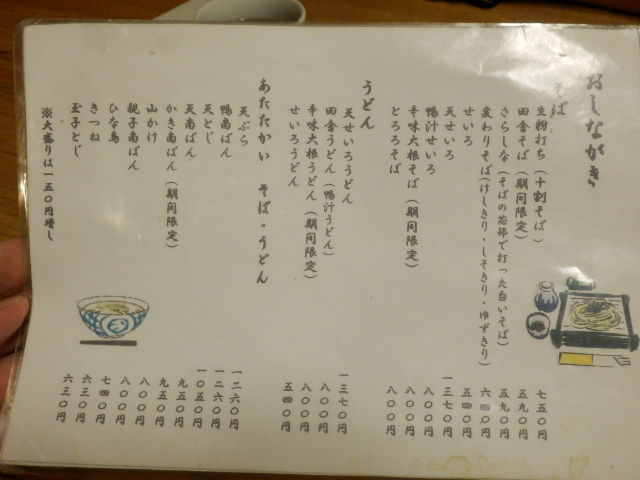 おしながき
そば
生粉打ち（十割そば） 七五〇円
田舎そば（期間限定） 五九〇円
さらしな（そばの芯部で打った白いそば） 五九〇円
変わりそば（けしきり・しそきり・ゆずきり） 六四〇円
せいろ 五四〇円
天せいろ 一三七〇円
鴨汁せいろ 八〇〇円
辛味大根そば（期間限定） 八〇〇円
とろろそば 八〇〇円
うどん
天せいろうどん 一三七〇円
田舎うどん（鴨汁うどん） 八〇〇円
辛味大根うどん（期間限定） 八〇〇円
せいろうどん 五四〇円
あたたかい そば・うどん
天ぷら 一二六〇円
鴨南ばん 一二六〇円
天とじ 一〇五〇円
天南ばん 九五〇円
かき南ばん（期間限定） 九五〇円
山かけ 八〇〇円
親子南ばん 八〇〇円
ひな鳥 七四〇円
きつね 六三〇円
玉子とじ 六三〇円
※大盛りは一五〇円増し